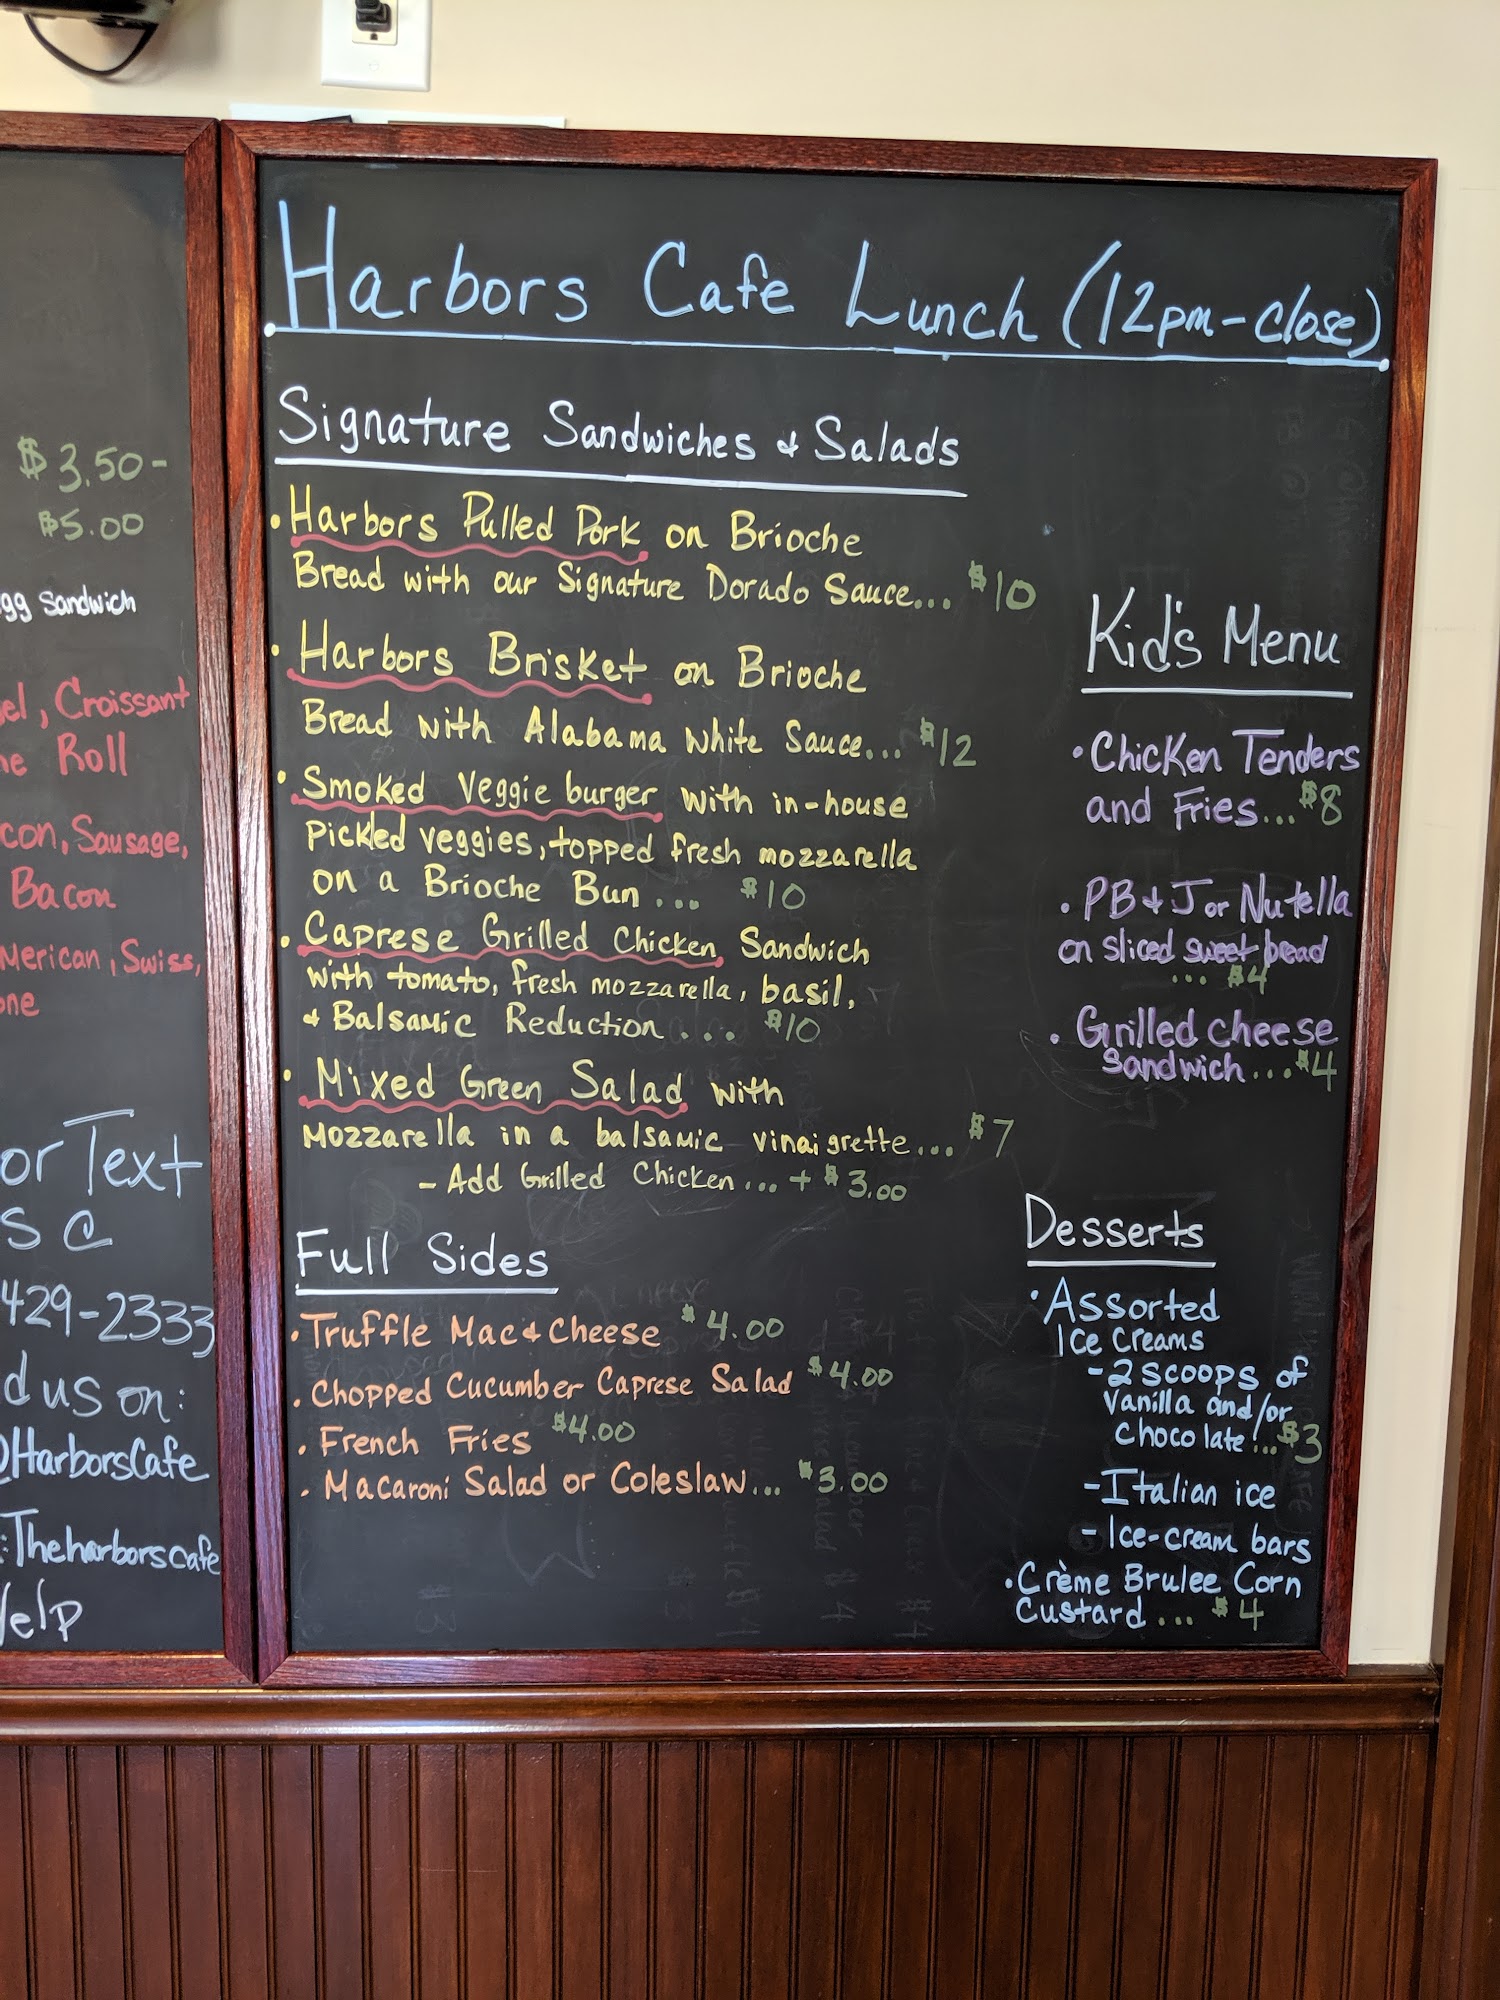 $3.50-
$5.00
gg Sandwich
el, Croissant
Roll
con, Sausage,
Bacon
merican, Swiss,
one
or Text
429-2333
d us on:
@HarborsCafe
:Theharborscafe
Yelp
Harbors Cafe Lunch (12pm-close)
Signature Sandwiches & Salads
• Harbors Pulled Pork on Brioche
Bread with our Signature Dorado Sauce... $10
• Harbors Brisket on Brioche
Bread with Alabama White Sauce... $12
• Smoked Veggie burger with in-house
Pickled veggies, topped fresh mozzarella
on a Brioche Bun ... $10
• Caprese Grilled Chicken Sandwich
with tomato, fresh mozzarella, basil,
& Balsamic Reduction .... $10
• Mixed Green Salad with
Mozzarella in a balsamic vinaigrette... $7
- Add Grilled Chicken ... + $3.00
Full Sides
• Truffle Mac & Cheese $4.00
• Chopped Cucumber Caprese Salad $4.00
• French Fries $4.00
• Macaroni Salad or Coleslaw... $3.00
Kid's Menu
• Chicken Tenders
and Fries...$8
• PB & J or Nutella
on sliced sweet bread
... $4
• Grilled cheese
Sandwich...$4
Desserts
• Assorted
Ice Creams
-2 scoops of
Vanilla and/or
chocolate!...$3
-Italian ice
-Ice-cream bars
• Crème Brulee Corn
Custard ... $4